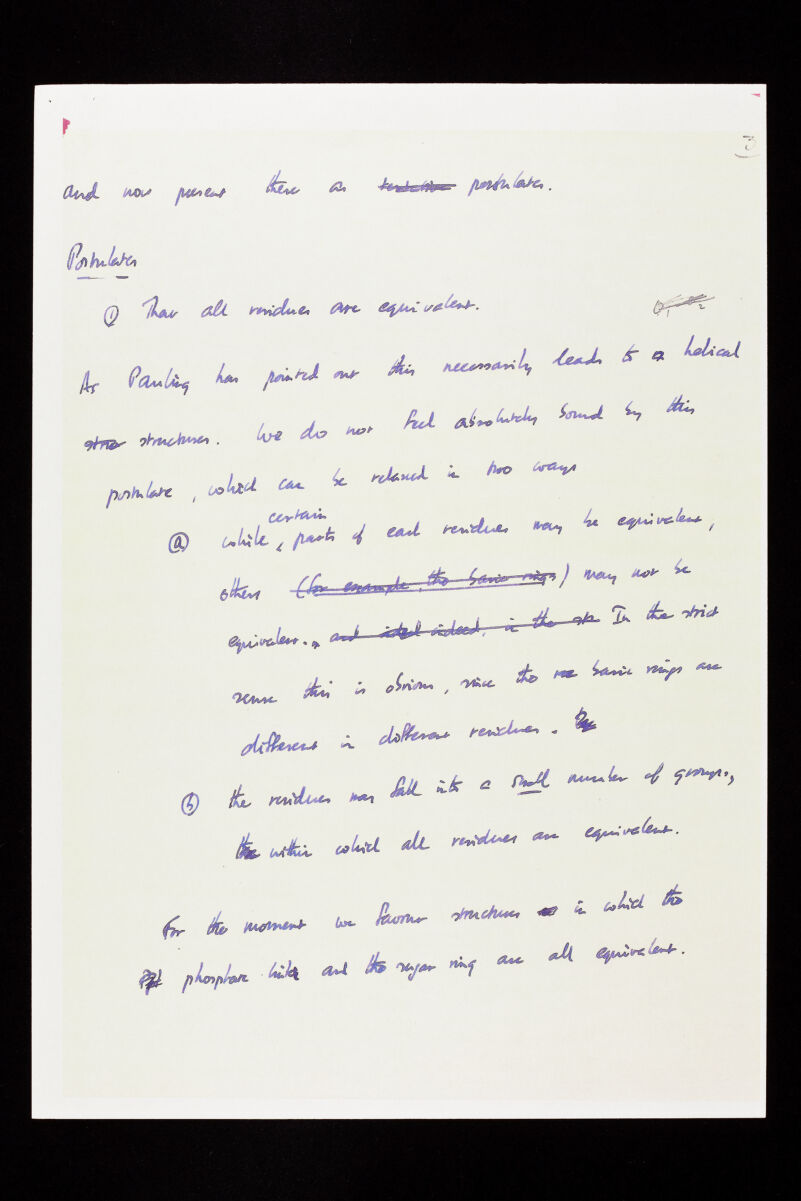 3
and now present these as tentative postulates.
Postulates
① That all residues are equivalent.
As Pauling has pointed out this necessarily leads to a helical
struc structures. We do not feel absolutely bound by this
postulate, which can be relaxed in two ways
certain
ⓐ while parts of each residues may be equivalent,
others (for example, the basic rings) may not be
equivalent. and indeed, in the In the strict
sense this is obvious, since the basic rings are
different in different residues.
ⓑ the residues may fall into a small number of groups,
the within which all residues are equivalent.
For the moment we favour structures in which the
phosphate links and the sugar ring are all equivalent.